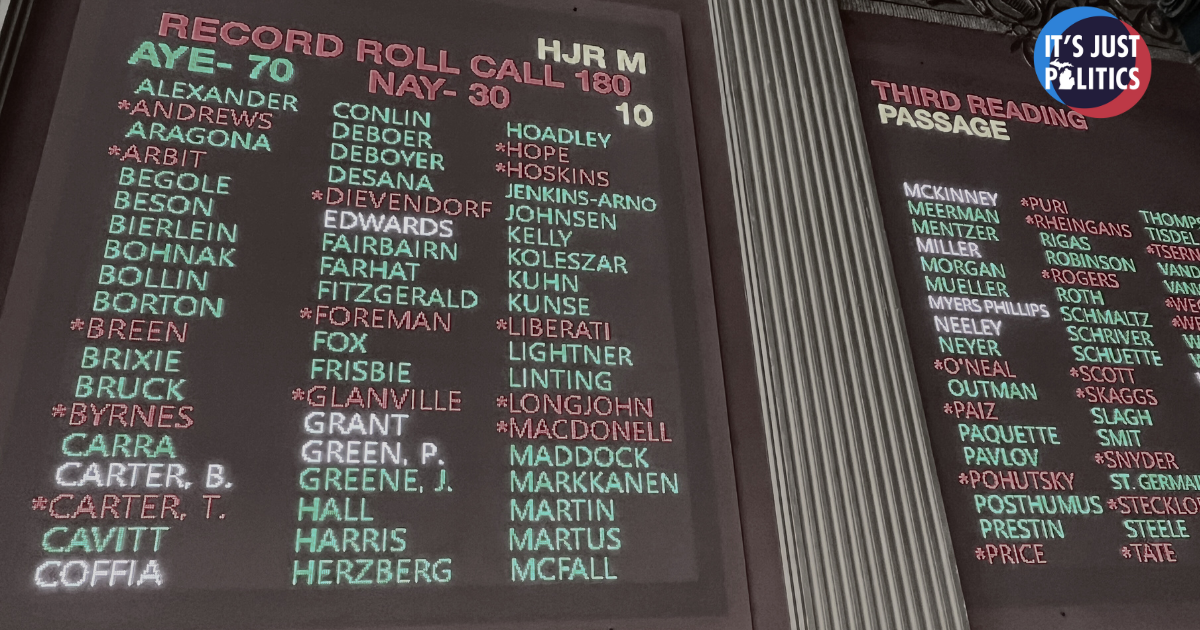 RECORD ROLL CALL 180
HJR M
AYE- 70
NAY- 30
10
ALEXANDER
*ANDREWS
ARAGONA
*ARBIT
BEGOLE
BESON
BIERLEIN
BOHNAK
BOLLIN
BORTON
*BREEN
BRIXIE
BRUCK
*BYRNES
CARRA
CARTER, B.
*CARTER, T.
CAVITT
COFFIA
CONLIN
DEBOER
DEBOYER
DESANA
*DIEVENDORF
EDWARDS
FAIRBAIRN
FARHAT
FITZGERALD
*FOREMAN
FOX
FRISBIE
*GLANVILLE
GRANT
GREEN, P.
GREENE, J.
HALL
HARRIS
HERZBERG
HOADLEY
*HOPE
*HOSKINS
JENKINS-ARNO
JOHNSEN
KELLY
KOLESZAR
KUHN
KUNSE
*LIBERATI
LIGHTNER
LINTING
*LONGJOHN
*MACDONELL
MADDOCK
MARKKANEN
MARTIN
MARTUS
MCFALL
THIRD READING
PASSAGE
MCKINNEY
MEERMAN
MENTZER
MILLER
MORGAN
MUELLER
MYERS PHILLIPS
NEELEY
NEYER
*O'NEAL
OUTMAN
*PAIZ
PAQUETTE
PAVLOV
*POHUTSKY
POSTHUMUS
PRESTIN
*PRICE
*PURI
*RHEINGANS
RIGAS
ROBINSON
*ROGERS
ROTH
SCHMALTZ
SCHRIVER
SCHUETTE
*SCOTT
*SKAGGS
SLAGH
SMIT
*SNYDER
ST. GERMAI
*STECKLO
STEELE
*TATE
THOMP
TISDEL
*TSERN
VAN
VAN
*WE
*WE
W
IT'S JUST
POLITICS